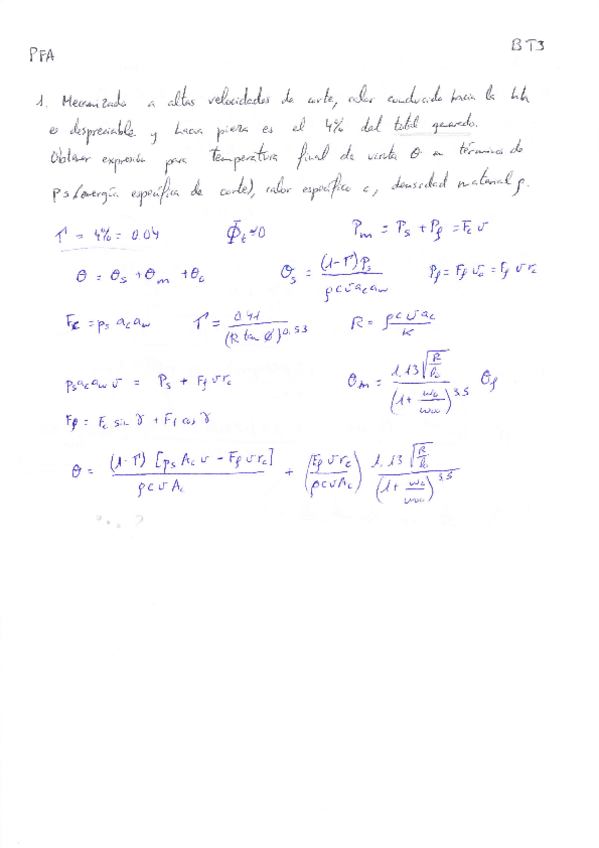 PFA
BT3
1. Mecanizado a altas velocidades de corte, calor conducido hacia la hta
es despreciable y hacia pieza es el 4% del total generado.
Obtener expresión para temperatura final de viruta θ en términos de
ps (energía específica de corte), calor específico c, densidad material ρ.
Γ = 4% = 0.04 Φ̄t ≈ 0 Pm = Ps + Pf = Fc v
θ = θs + θm + θo θs = (1-Γ)Ps / ρ c v ac aw Pf = Ff vc = Ff v rc
Fc = ps ac aw Γ = 0.41 / (R tan φ)^0.53 R = ρ c v ac / K
ps ac aw v = Ps + Ff v rc θm = 1.13 √(R/l0) / (1 + w0/w00)^3.5 θf
Ff = Fc sin γ + Ft cos γ
θ = (1-Γ) [ps Ac v - Ff v rc] / ρ c v Ac + (Ff v rc / ρ c v Ac) 1.13 √(R/l0) / (1 + w0/w00)^3.5